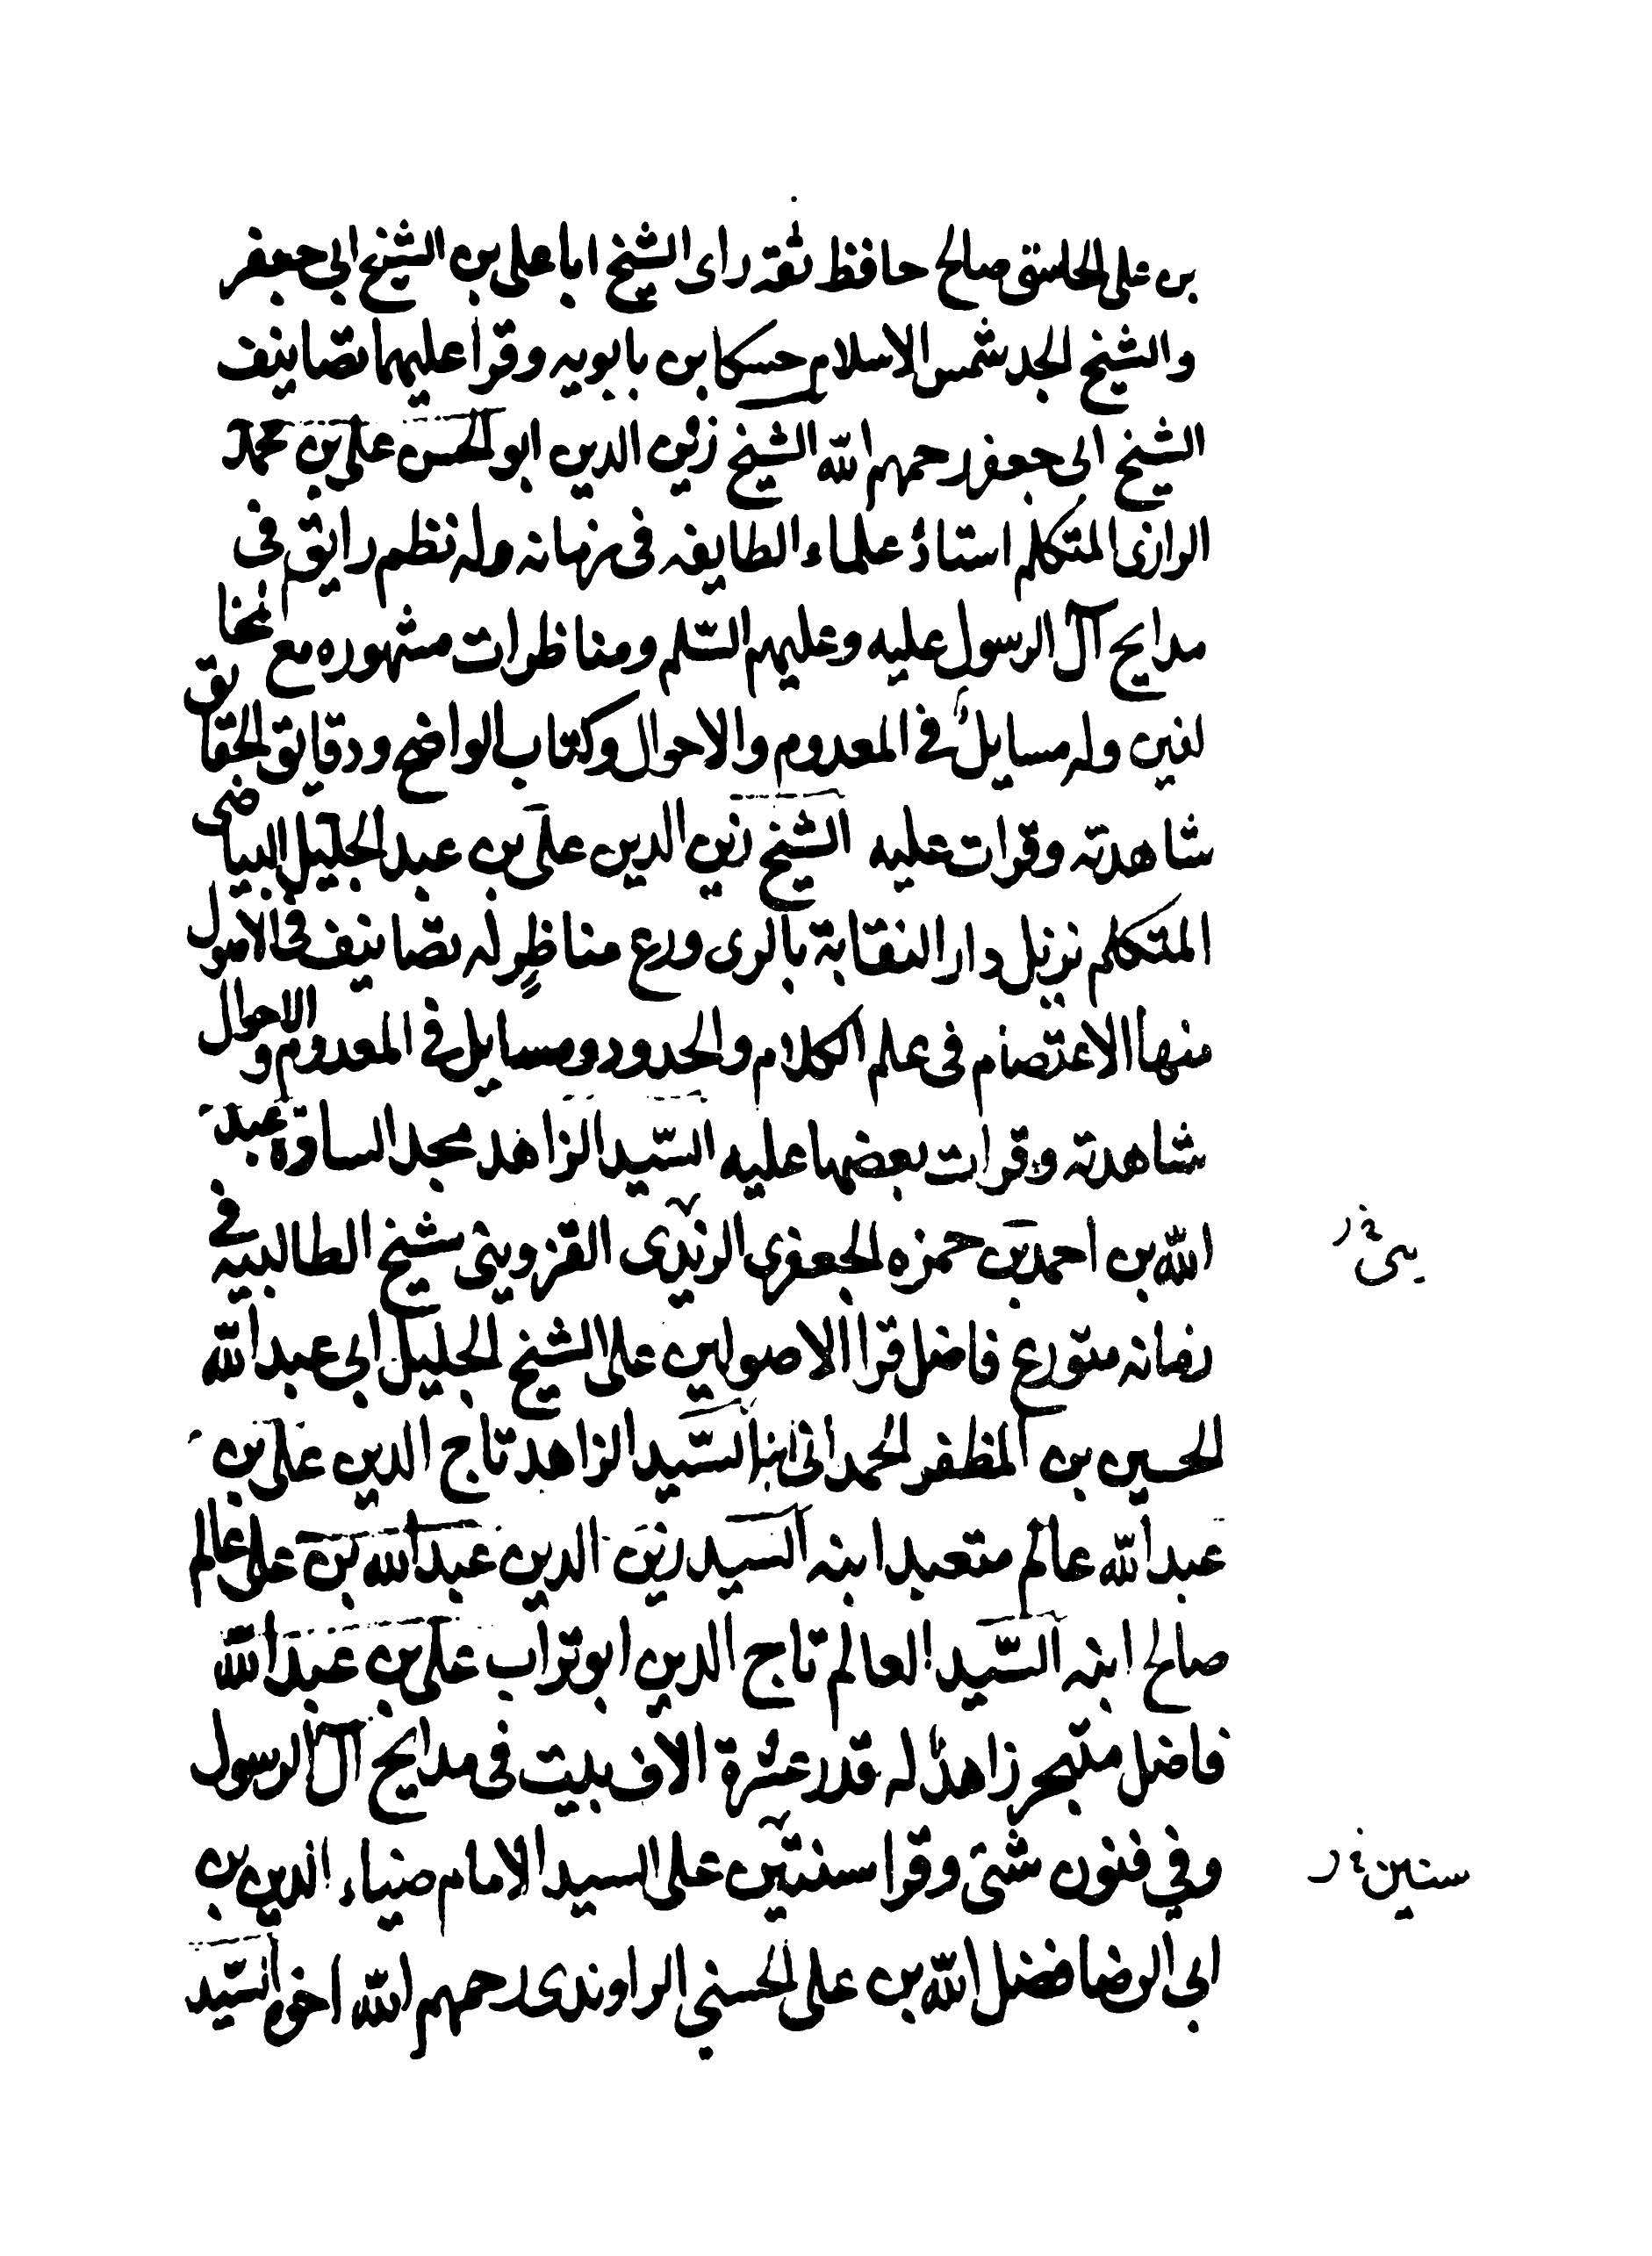 بن على الحاستى صالح حافظ ثقه راى الشيخ ابا على بن الشيخ ابى جعفر
والشيخ الجد شمس الاسلام حسكا بن بابويه وقرا عليهما تصانيف
الشيخ ابى جعفر رحمهم الله الشيخ زين الدين ابو الحسن على بن محمد
الرازى المتكلم استاذ علماء الطايفه فى زمانه وله نظم رايق فى
مدايح آل الرسول عليه وعليهم السّلم ومناظرات مشهوره مع المخا
لفين وله مسايل في المعدوم والاحوال وكتاب الواضح ودقايق الحقايق
شاهدته وقرات عليه الشيخ زين الدين على بن عبد الجليل البياضى
المتكلم نزيل دار النقابة بالرى ورع مناظر له تصانيف فى الاصول
منها الاعتصام فى علم الكلام والحدود ومسايل في المعدوم والاحوال
شاهدته وقرات بعضها عليه السّيد الزاهد مجد السادة عبد
الله بن احمد بن حمزه الجعفرى الزيندى القزوينى شيخ الطالبيه في
زمانه متورع فاضل قرا الاصولين على الشيخ الجليل ابى عبد الله
الحسين بن المظفر الحمدانى ابنه السّيد الزاهد تاج الدين على بن
عبد الله عالم متعبد ابنه السيد زين الدين عبد الله بن على عالم
صالح ابنه السّيد العالم تاج الدين ابو تراب على بن عبد الله
فاضل متبحر زاهد له قدر عشرة الاف بيت فى مدايح آل الرسول
وفي فنون شتى وقرا سنتين على السيد الامام ضياء الدين بن
ابى الرضا فضل الله بن على الحسني الراوندى رحمهم الله اخوه السّيد
سنين